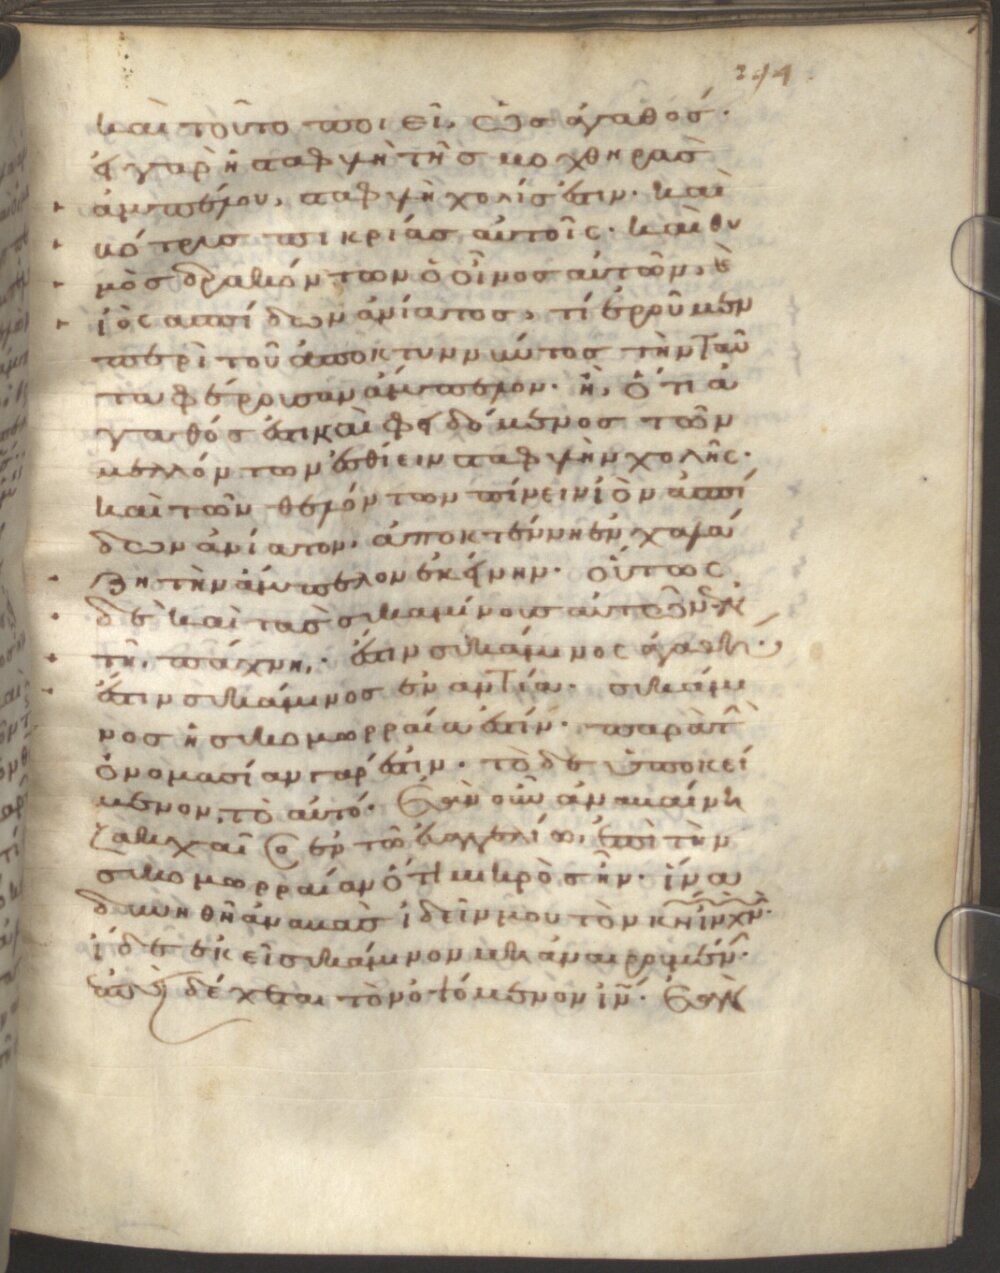 καὶ τοῦτο ποιεῖ, ὡς ἀγαθός·
εἰ γὰρ ἡ σταφυλὴ τῆς μοχθηρᾶς
ἀμπέλου, σταφυλὴ χολῆς ἐστιν· καὶ
βότρυς πικρίας αὐτοῖς· καὶ θυ
μὸς δρακόντων ὁ οἶνος αὐτῶν, καὶ
ἰὸς ἀσπίδων ἀνίατος, τί ἐροῦμεν
περὶ τοῦ ἀποκτυννύντος τὴν ταῦ
τα φέρουσαν ἄμπελον· ἢ, ὅτι ἀ
γαθός ἐστι καὶ φειδόμενος τῶν
μελλόντων ἐσθίειν σταφυλὴν χολῆς·
καὶ τῶν θελόντων πίνειν ἰὸν ἀσπί
δων ἀνίατον, ἀποκτέννησιν χαλά
ζη τὴν ἄμπελον ἐκείνην· οὕτως
δὲ καὶ τὰς συκαμίνους αὐτῶν ἐν
τῆ, πάχνη,· ἔστιν συκάμινος ἀγαθή·
ἔστιν συκάμινος ἐναντία· συκάμι
νος ἡ συκομωρραία ἐστίν· παρὰ τὴν
ὀνομασίαν γάρ ἐστιν· τὸ δὲ ὑποκεί
μενον, τὸ αὐτό· ἐὰν οὖν ἀναβαίνη
ζακχαῖος ἐν τῶ εὐαγγελίω, ἐπὶ τὴν
συκομωρραίαν ὅτι μικρὸς ἦν· ἵνα
δυνηθῆ ἀναβὰς ἰδεῖν μου τὸν κν ιν χν·
ἴδε ἐκεῖ συκάμινον μὴ ἀναιρουμένην·
ἐπεὶ δέχεται τὸν ὀψόμενον ιν· ἐὰν